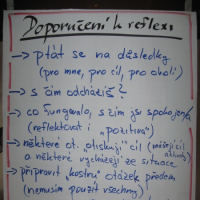 Doporučení k reflexi
→ ptát se na důsledky
(pro mne, pro cíl, pro okolí)
→ s čím odcházíš?
→ co fungovalo, s čím jsi spokojený/á
(reflektovat i "pozitiva")
→ některé ot. otiskují cíl (měřejí cíl
a některé vycházejí ze situace
→ připravit "kostru" otázek předem
(nemusím použít všechny)